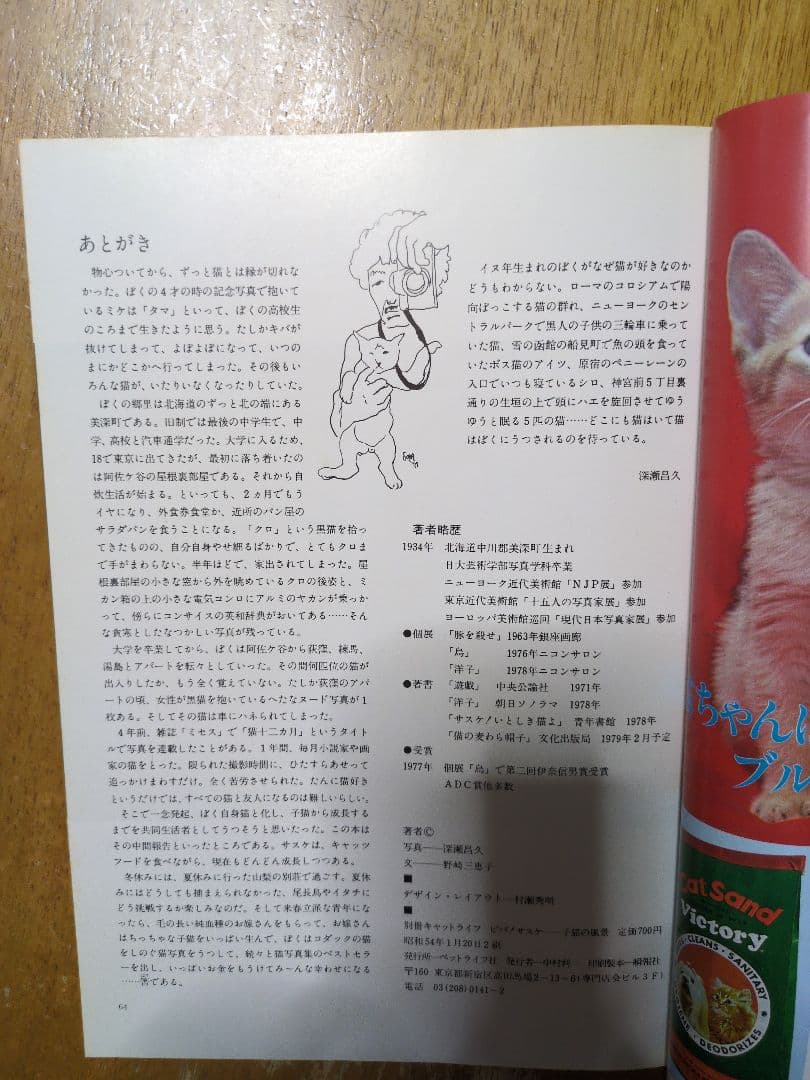 あとがき
物心ついてから、ずっと猫とは縁が切れな
かった。ぼくの4才の時の記念写真で抱いて
いるミケは「タマ」といって、ぼくの高校生
のころまで生きたように思う。たしかキバが
抜けてしまって、よぼよぼになって、いつの
まにかどこかへ行ってしまった。その後もい
ろんな猫が、いたりいなくなったりしていた。
ぼくの郷里は北海道のずっと北の端にある
美深町である。旧制では最後の中学生で、中
学、高校と汽車通学だった。大学に入るため、
18で東京に出てきたが、最初に落ち着いたの
は阿佐ケ谷の屋根裏部屋である。それから自
炊生活が始まる。といっても、2ヵ月でもう
イヤになり、外食券食堂か、近所のパン屋の
サラダパンを食うことになる。「クロ」という黒猫を拾っ
てきたものの、自分自身やせ細るばかりで、とてもクロま
で手がまわらない。半年ほどで、家出されてしまった。屋
根裏部屋の小さな窓から外を眺めているクロの後姿と、ミ
カン箱の上の小さな電気コンロにアルミのヤカンが乗っか
って、傍らにコンサイスの英和辞典がおいてある……そん
な食寒としたなつかしい写真が残っている。
大学を卒業してから、ぼくは阿佐ケ谷から荻窪、練馬、
湯島とアパートを転々としていった。その間何匹位の猫が
出入りしたか、もう全く覚えていない。たしか荻窪のアパ
ートの頃、女性が黒猫を抱いているへたなヌード写真が1
枚ある。そしてその猫は車にハネられてしまった。
4年前、雑誌「ミセス」で「猫十二カ月」というタイト
ルで写真を連載したことがある。1年間、毎月小説家や画
家の猫をとった。限られた撮影時間に、ひたすらあせって
追っかけまわすだけ。全く苦労させられた。たんに猫好き
というだけでは、すべての猫と友人になるのは難しいらしい。
そこで一念発起、ぼく自身猫と化し、子猫から成長する
までを共同生活者としてうつそうと思いたった。この本は
その中間報告といったところである。サスケは、キャッツ
フードを食べながら、現在もどんどん成長しつつある。
冬休みには、夏休みに行った山梨の別荘で過ごす。夏休
みにはどうしても捕まえられなかった、尾長鳥やイタチに
どう挑戦するか楽しみなのだ。そして来春立派な青年にな
ったら、毛の長い純血種のお嫁さんをもらって、お嫁さん
はちっちゃな子猫をいっぱい生んで、ぼくはコダックの猫
をしのぐ猫写真をうつして、続々と猫写真集のベストセラ
ーを出し、いっぱいお金をもうけてみ〜んな幸わせになる
……筈である。
64
イヌ年生まれのぼくがなぜ猫が好きなのか
どうもわからない。ローマのコロシアムで陽
向ぼっこする猫の群れ、ニューヨークのセン
トラルパークで黒人の子供の三輪車に乗って
いた猫、雪の函館の船見町で魚の頭を食って
いたボス猫のアイツ、原宿のペニーレーンの
入口でいつも寝ているシロ、神宮前5丁目裏
通りの生垣の上で頭にハエを旋回させてゆう
ゆうと眠る5匹の猫……どこにも猫はいて猫
はぼくにうつされるのを待っている。
深瀬昌久
著者略歴
1934年 北海道中川郡美深町生まれ
日大芸術学部写真学科卒業
ニューヨーク近代美術館「NJP展」参加
東京近代美術館「十五人の写真家展」参加
ヨーロッパ美術館巡回「現代日本写真家展」参加
●個展 「豚を殺せ」1963年銀座画廊
「烏」 1976年ニコンサロン
「洋子」 1978年ニコンサロン
●著書 「遊戯」 中央公論社 1971年
「洋子」 朝日ソノラマ 1978年
「サスケ!!いとしき猫よ」 青年書館 1978年
「猫の麦わら帽子」 文化出版局 1979年2月予定
●受賞
1977年 個展「烏」で第二回伊奈信男賞受賞
ADC賞他多数
著者©
写真——深瀬昌久
文——野崎三恵子
■
デザイン・レイアウト—村瀬秀明
■
別冊キャットライフ ビバ!サスケ——子猫の風景 定価700円
昭和54年1月20日2刷
発行所—ペットライフ社 発行者—中村利一 印刷製本—錦報社
〒160 東京都新宿区高田馬場2-13-6(専門店会ビル3F)
電話 03(208)0141~2
ちゃんに
ブル
Cat Sand
Victory
CLEANS・SANITARY
DEODORIZES